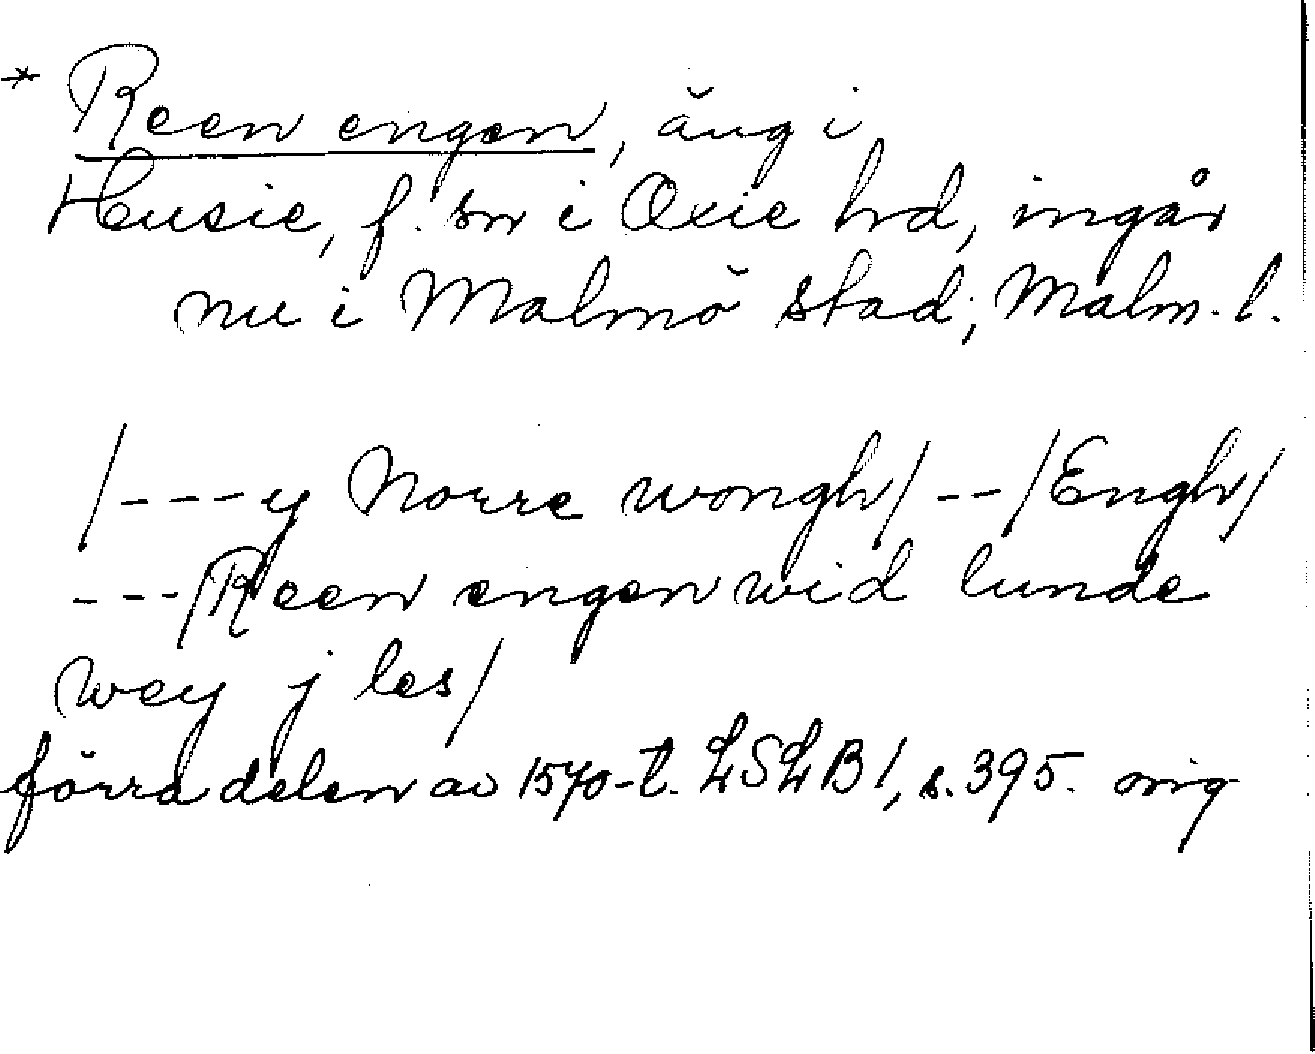 * Reen engen, äng i
Husie, f. sn i Oxie hd, ingår
nu i Malmö stad, Malm. l.
/---y Norre wongh/--/Engh/
---/Reen engen wid lunde
wey j les/
förra delen av 1570-t. LSLB1, s. 395. orig